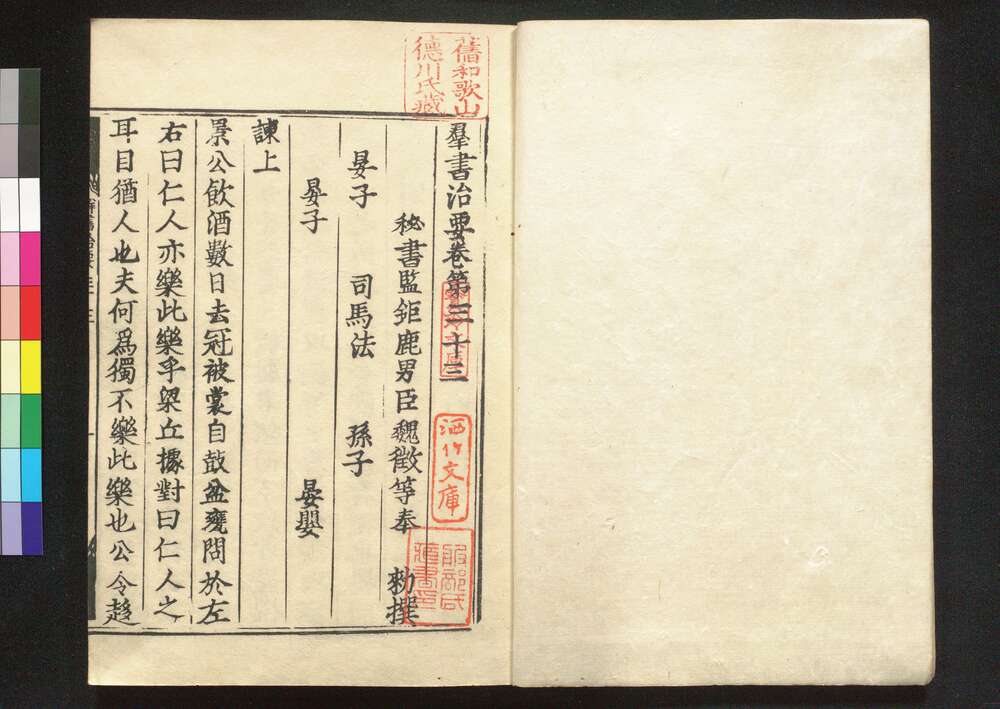 羣書治要卷第三十三
秘書監鉅鹿男臣魏徵等奉 勅撰
晏子 司馬法 孫子
晏子 晏嬰
諫上
景公飲酒數日去冠被裳自鼓盆甕問於左
右曰仁人亦樂此樂乎梁丘據對曰仁人之
耳目猶人也夫何爲獨不樂此樂也公令趍
舊和歌山
德川氏藏
洒竹文庫